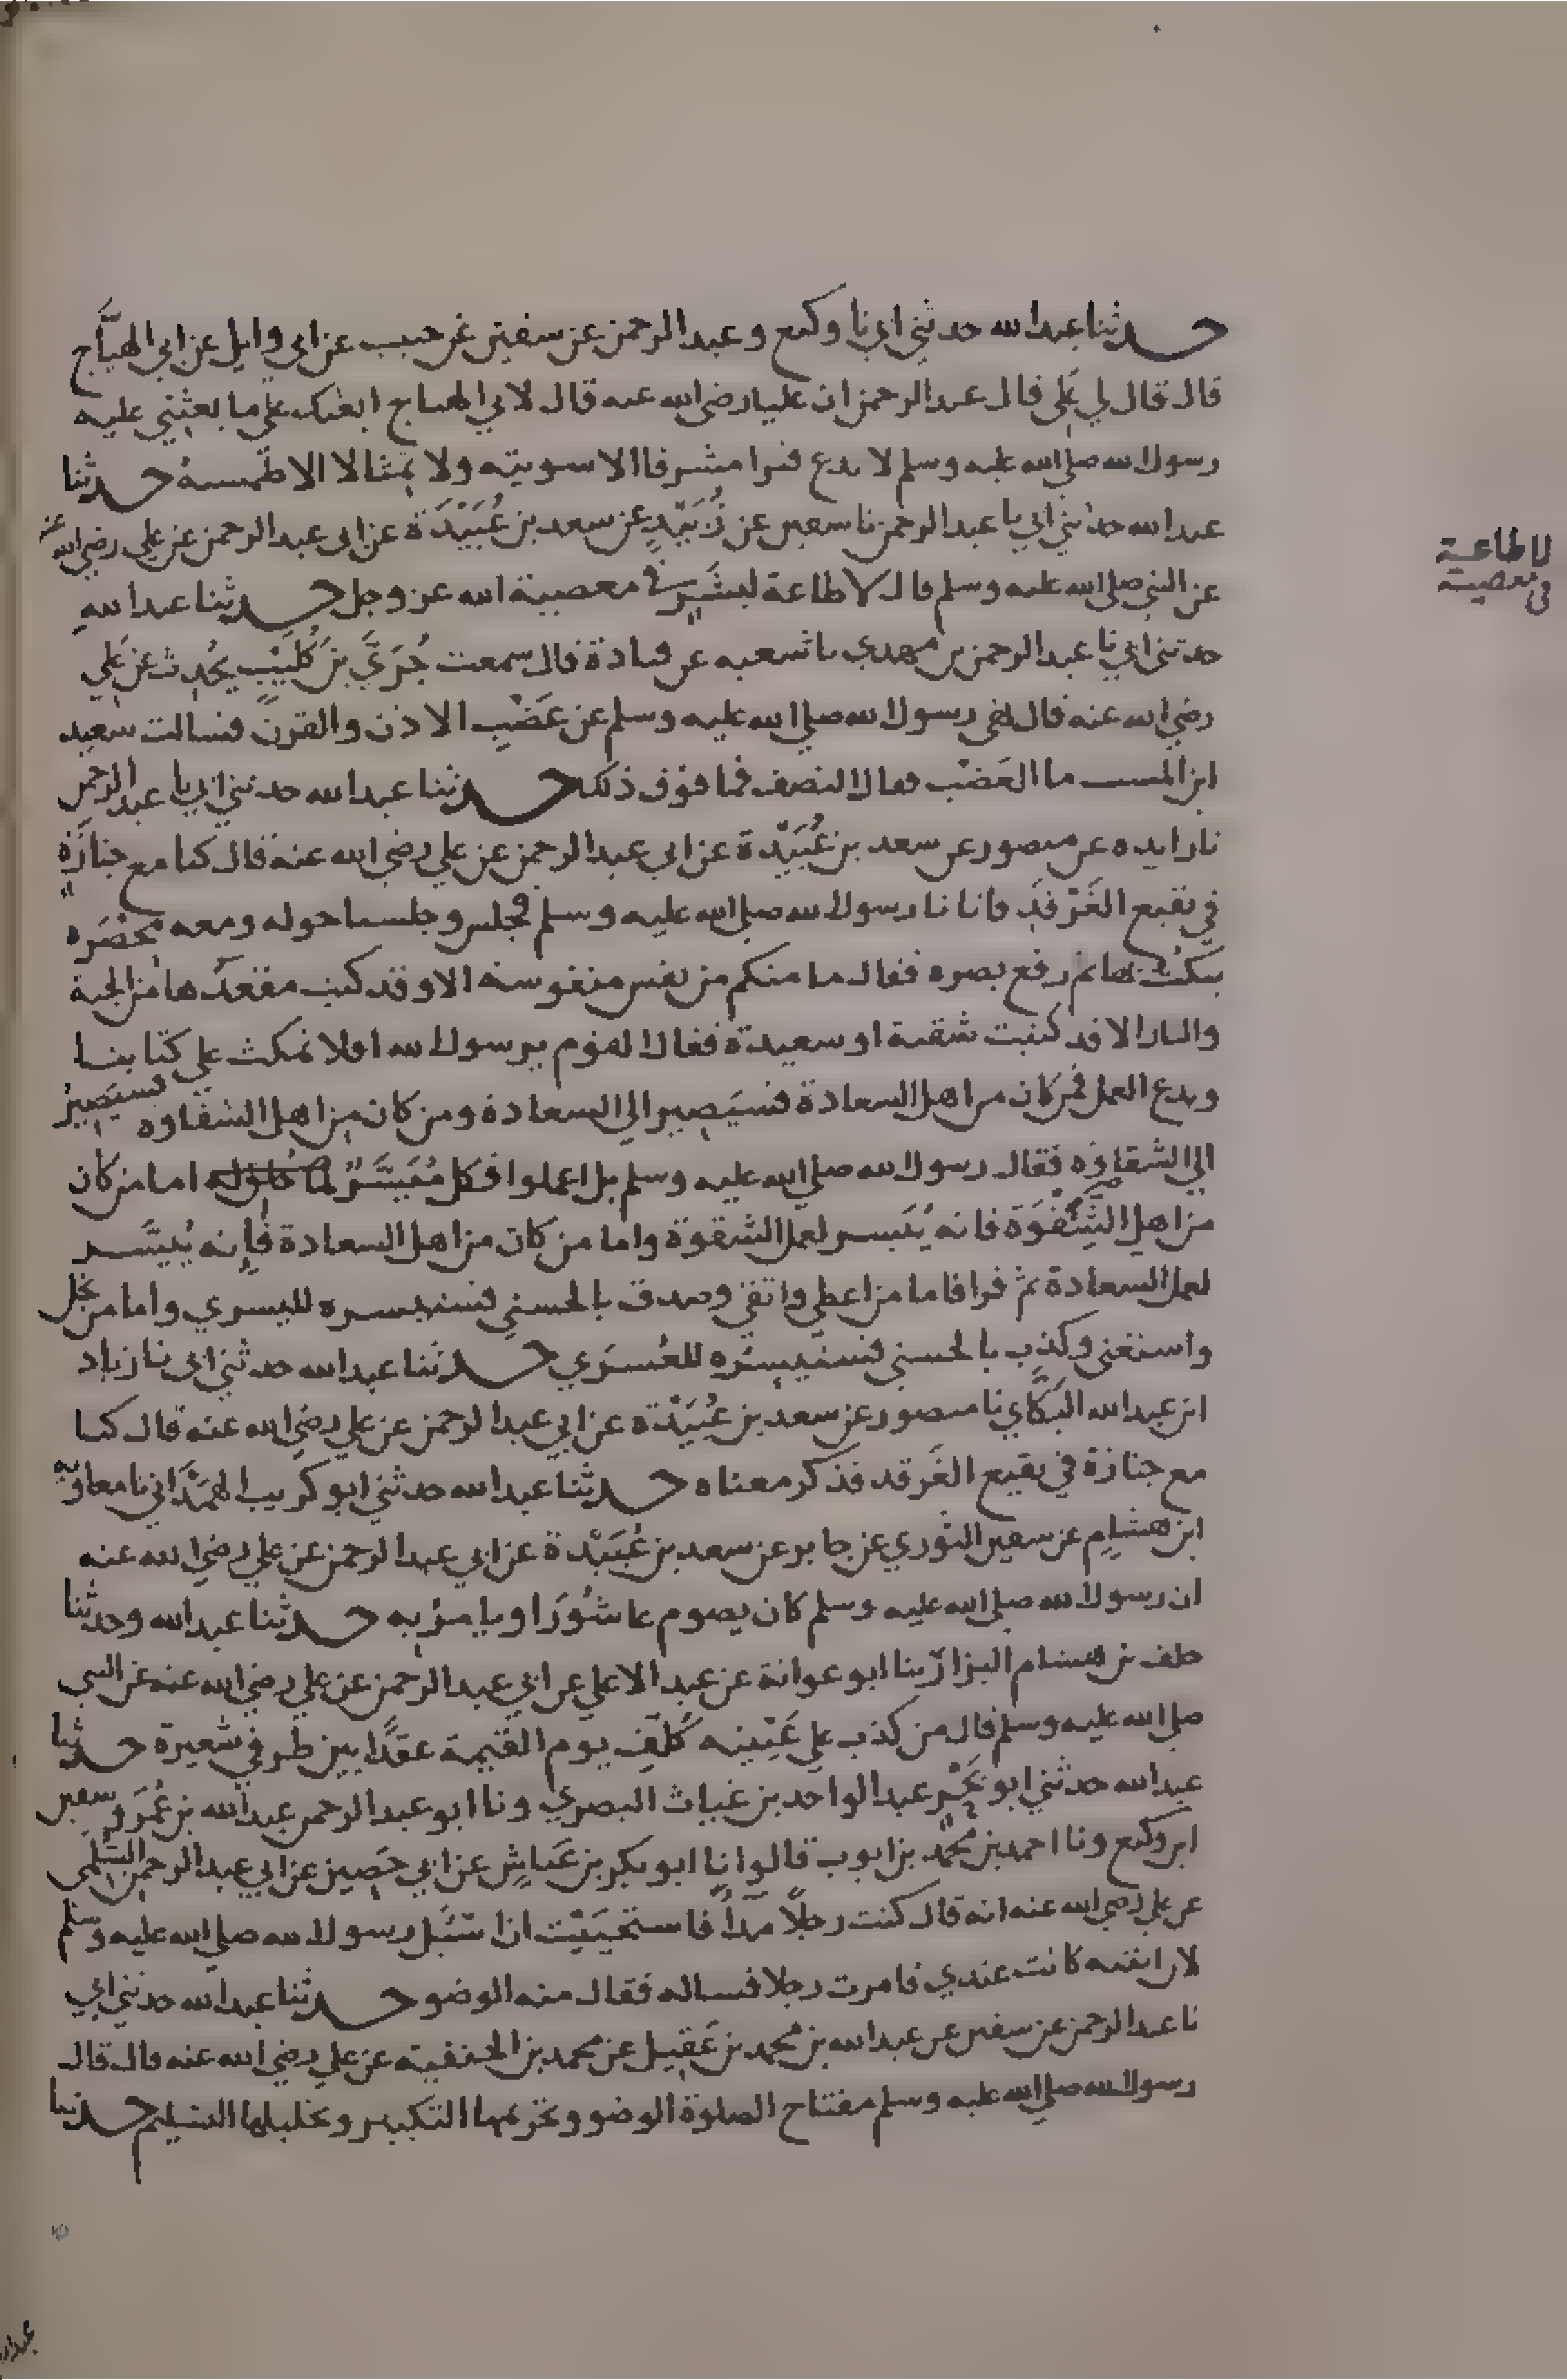 حدثنا عبد الله حدثني ابي نا وكيع وعبد الرحمن عن سفين عن حبيب عن ابي وايل عن ابي الهيّاج
قال قال لي علي قال عبد الرحمن ان عليا رضي الله عنه قال لابي الهياج ابعثك على ما بعثني عليه
رسول الله صلى الله عليه وسلم لا تدع قبرا مشرفا الا سويته ولا تمثالا الا طمسته حدثنا
عبد الله حدثني ابي نا عبد الرحمن نا سفين عن زُبَيْدٍ عن سعد بن عُبَيْدَة عن ابي عبد الرحمن عن علي رضي الله عنه
عن النبي صلى الله عليه وسلم قال لا طاعة لبشَرٍ في معصية الله عز وجل حدثنا عبد الله
حدثني ابي نا عبد الرحمن بن مهدي نا شعبه عن قتادة قال سمعت جُرَيَّ بن كُلَيْبٍ يحُدث عن علي
رضي الله عنه قال نهى رسول الله صلى الله عليه وسلم عن عَضْبِ الاذن والقرن فسالت سعيد
ابن المسيب ما العَضْب فقال النصف فما فوق ذلك حدثنا عبد الله حدثني ابي نا عبد الرحمن
نا زايده عن منصور عن سعد بن عُبَيْدة عن ابي عبد الرحمن عن علي رضي الله عنه قال كنا مع جنازة
في بقيع الغَرْقَدِ فاتانا رسول الله صلى الله عليه وسلم فجلس وجلسنا حوله ومعه مخْصَره
ينكُت بها ثم رفع بصره فقال ما منكم من نفس منفوسة الا وقد كتب مقعدُها من الجنة
والنار الا قد كتبت شقية او سعيدة فقال القوم يرسول الله افلا نمكث على كتابنا
وندع العمل فمن كان من اهل السعادة فسيَصير الى السعادة ومن كان من اهل الشقاوه فسيَصِيرُ
الى الشقاوة فقال رسول الله صلى الله عليه وسلم بل اعملوا فكل مُيَسَّرٌ لما خلق له اما من كان
من اهل الشِّقْوَة فانه يُيَسر لعمل الشقوة واما من كان من اهل السعادة فإنه يُيسَّر
لعمل السعادة ثم قرا فاما من اعطى واتقى وصدق بالحسنى فسنيسره لليسري واما من بخل
واستغنى وكذب بالحسنى فسنيسِّره للعُسرَي حدثنا عبد الله حدثني ابي نا زياد
ابن عبد الله البَكَّاي نا منصور عن سعد بن عُبَيْدة عن ابي عبد الرحمن عن علي رضي الله عنه قال كنا
مع جنازة في بقيع الغَرقد فذكر معناه حدثنا عبد الله حدثني ابو كريب الهَمْدَاني نا معاويه
ابن هشام عن سفين الثوري عن جابر عن سعد بن عُبَيْدة عن ابي عبد الرحمن عن علي رضي الله عنه
ان رسول الله صلى الله عليه وسلم كان يصوم عاشُورَا ويامرُ به حدثنا عبد الله وحدثنا
خلف بن هشام البزار نا ابو عوانة عن عبد الاعلى عن ابي عبد الرحمن عن علي رضي الله عنه عن النبي
صلى الله عليه وسلم قال من كذب على عَيْنيه كُلّف يوم القيمة عقدًا بين طرفي شعيرة حدثنا
عبد الله حدثني ابو بَحْر عبد الواحد بن غياث البصري ونا ابو عبد الرحمن عبد الله بن عُمَرَ وسفين
ابن وكيع ونا احمد بن محمَّد بن ايوب قالوا نا ابو بكر بن عَياشٍ عن ابي حَصِين عن ابي عبد الرحمن السُّلمي
عن علي رضي الله عنه انه قال كنت رجلًا مذاً فاستحيَيْت ان اسَئَل رسول الله صلى الله عليه وسلم
لان ابنته كانت عندي فامرت رجلا فساله فقال منه الوضو حدثنا عبد الله حدثني ابي
نا عبد الرحمن عن سفين عن عبد الله بن محمد بن عَقِيل عن محمد بن الحنفية عن علي رضي الله عنه قال قال
رسول الله صلى الله عليه وسلم مفتاح الصلوة الوضو وتحريمها التكبير وتحليلها التسليم حدثنا
لا طاعة
في معصية